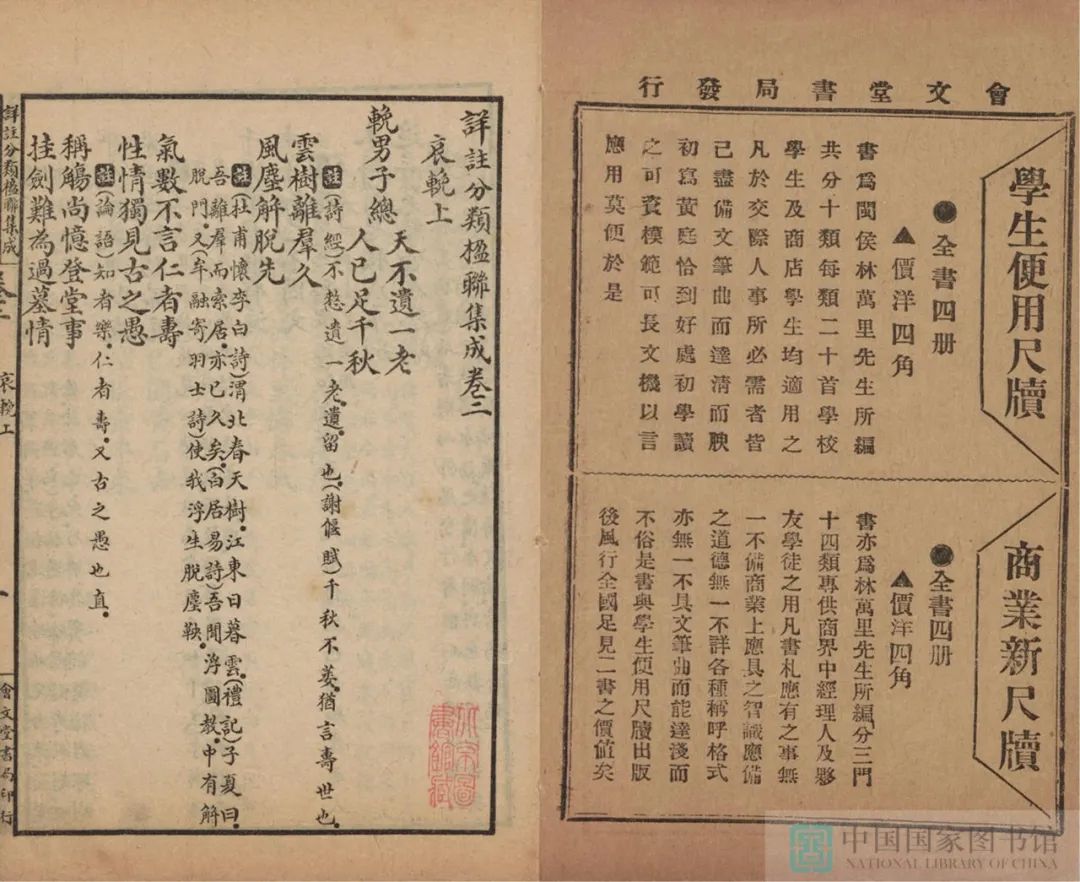 會文堂書局發行
學生使用尺牘
●全書四册
▲價洋四角
書爲閩侯林萬里先生所編
共分十類每類二十首學校
學生及商店學生均適用之
凡於交際人事所必需者皆
已盡備文筆曲而達淸而腴
初寫黃庭恰到好處初學讀
之可資模範可長文機以言
應用莫便於是
商業新尺牘
●全書四册
▲價洋四角
書亦爲林萬里先生所編分三門
十四類專供商界中經理人及夥
友學徒之用凡書札應有之事無
一不備商業上應具之智識應備
之道德無一不詳各種稱呼格式
亦無一不具文筆曲而能達淺而
不俗是書與學生使用尺牘出版
後風行全國足見二書之價値矣
詳註分類楹聯集成卷二
哀輓上
輓男子總
天不遺一老
人已足千秋
註(詩經)不憖遺一老遺留也(謝偃賦)千秋不萎猶言壽世也
雲樹離羣久
風塵解脫先
註(杜甫懷李白詩)渭北春天樹江東日暮雲(禮記)子夏曰
吾離羣而索居亦已久矣(白居易詩)吾聞浮圖教中有解
脫門又(牟融寄羽士詩)使我浮生脫塵鞅
氣數不言仁者壽
性情獨見古之愚
註(論語)知者樂仁者壽又古之愚也直
稱觴尚憶登堂事
挂劍難為過墓情
詳註分類楹聯集成
卷二
哀輓上
一
會文堂書局印行
中国国家图书馆
NATIONAL LIBRARY OF CHINA